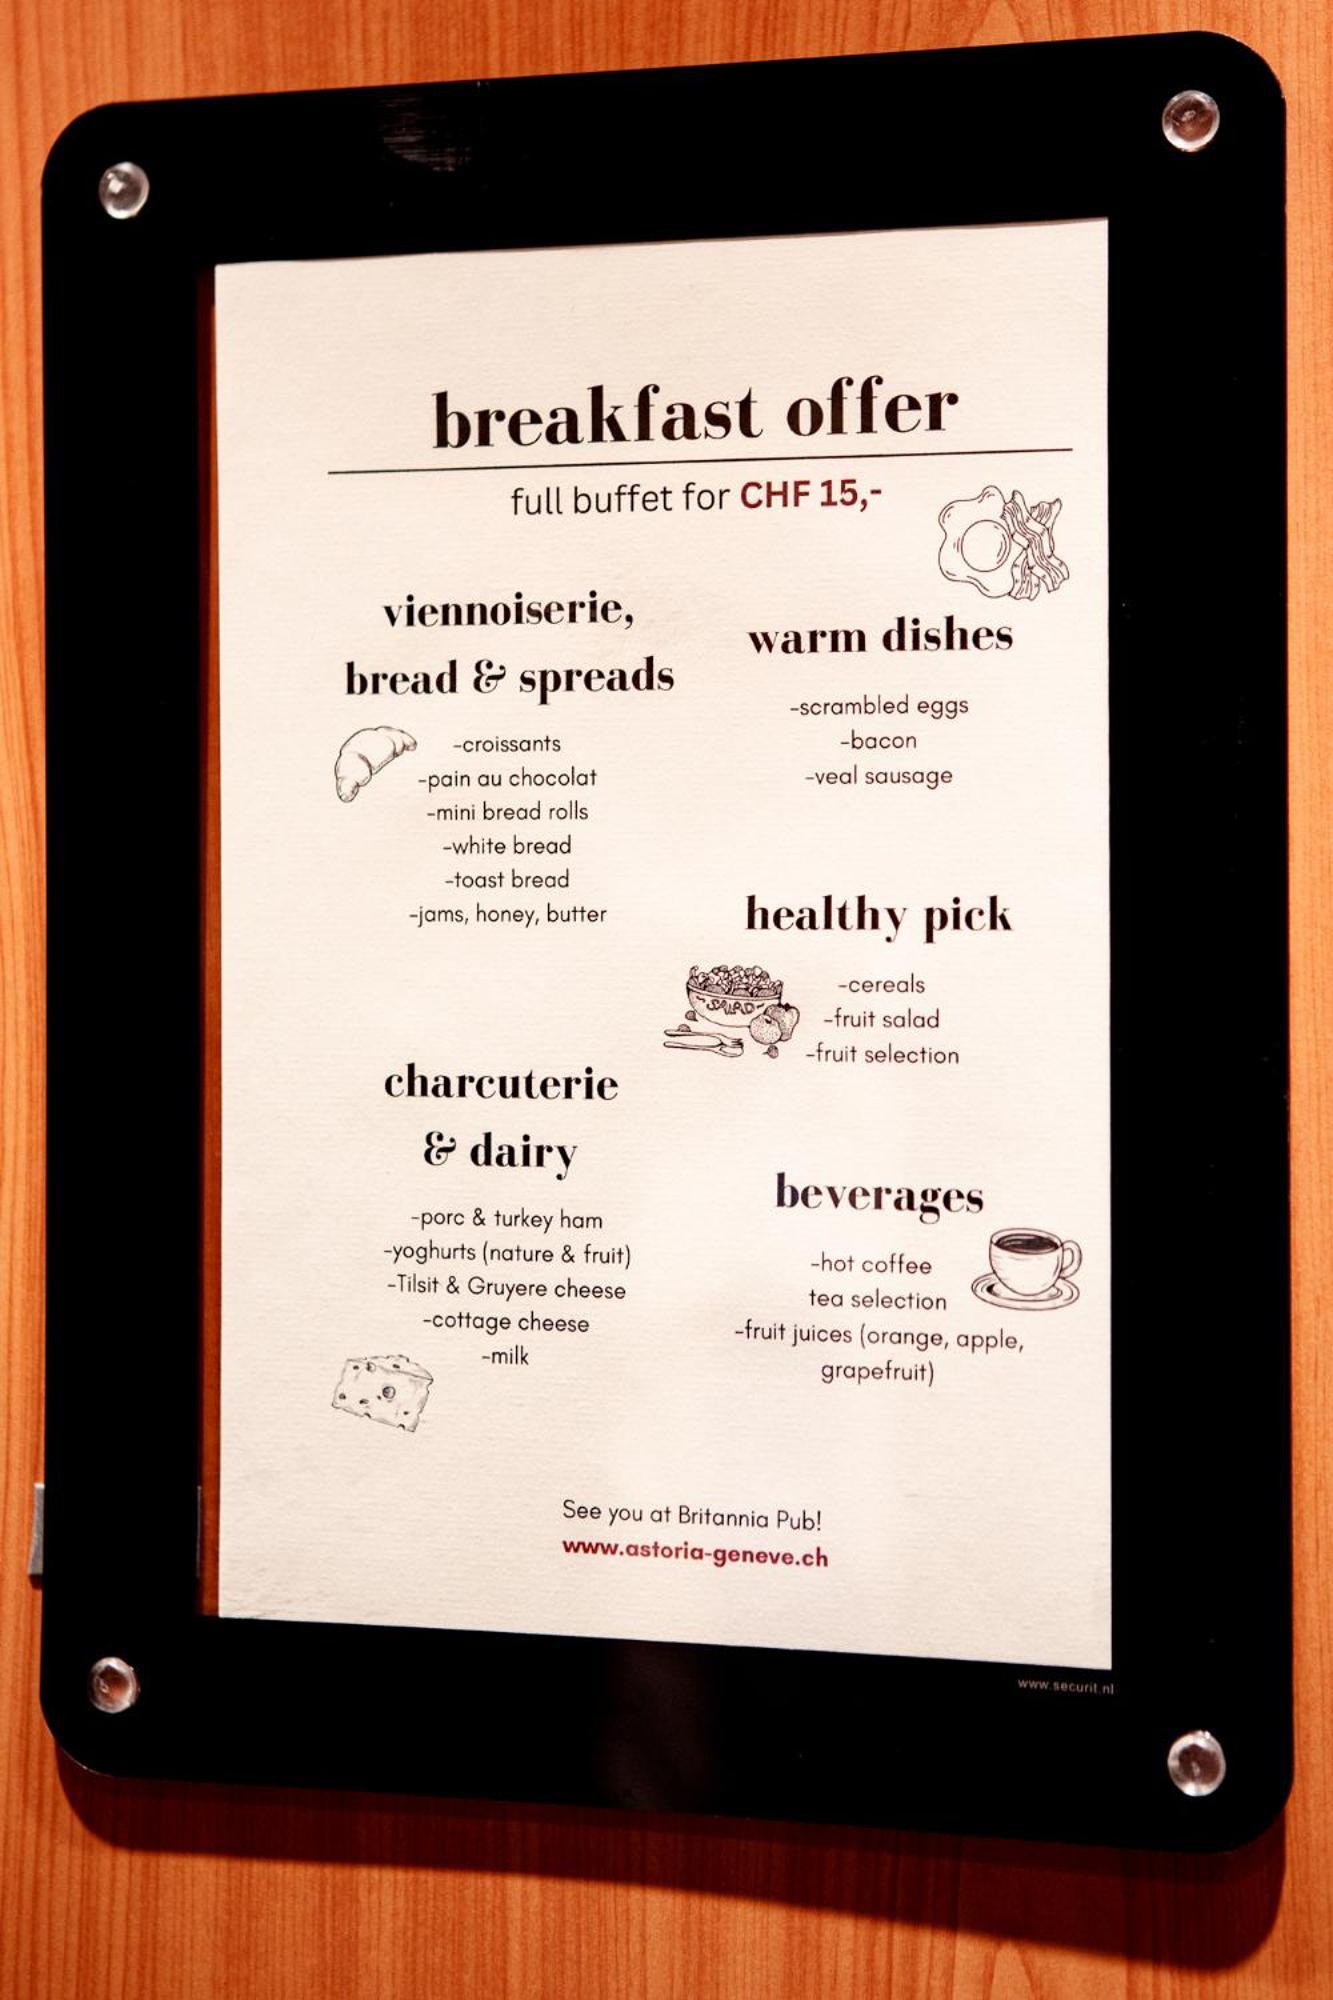 breakfast offer
full buffet for CHF 15,-
viennoiserie,
bread & spreads
-croissants
-pain au chocolat
-mini bread rolls
-white bread
-toast bread
-jams, honey, butter
charcuterie
& dairy
-porc & turkey ham
-yoghurts (nature & fruit)
-Tilsit & Gruyere cheese
-cottage cheese
-milk
warm dishes
-scrambled eggs
-bacon
-veal sausage
healthy pick
SALAD
-cereals
-fruit salad
-fruit selection
beverages
-hot coffee
tea selection
-fruit juices (orange, apple,
grapefruit)
See you at Britannia Pub!
www.astoria-geneve.ch
www.securit.nl